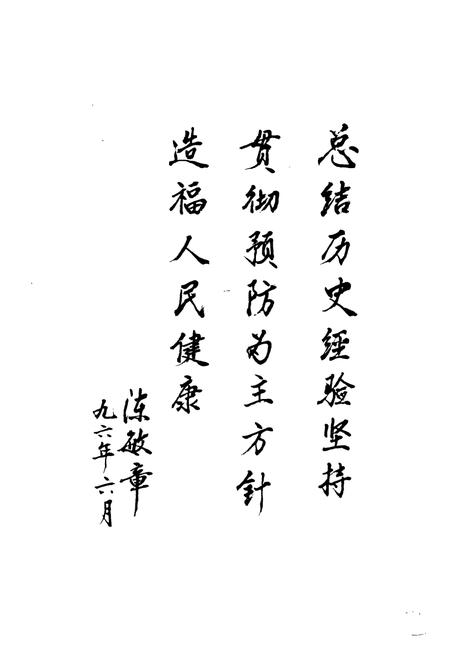 总结历史經验坚持
贯彻预防为主方針
造福人民健康
陈敏章
九六年六月